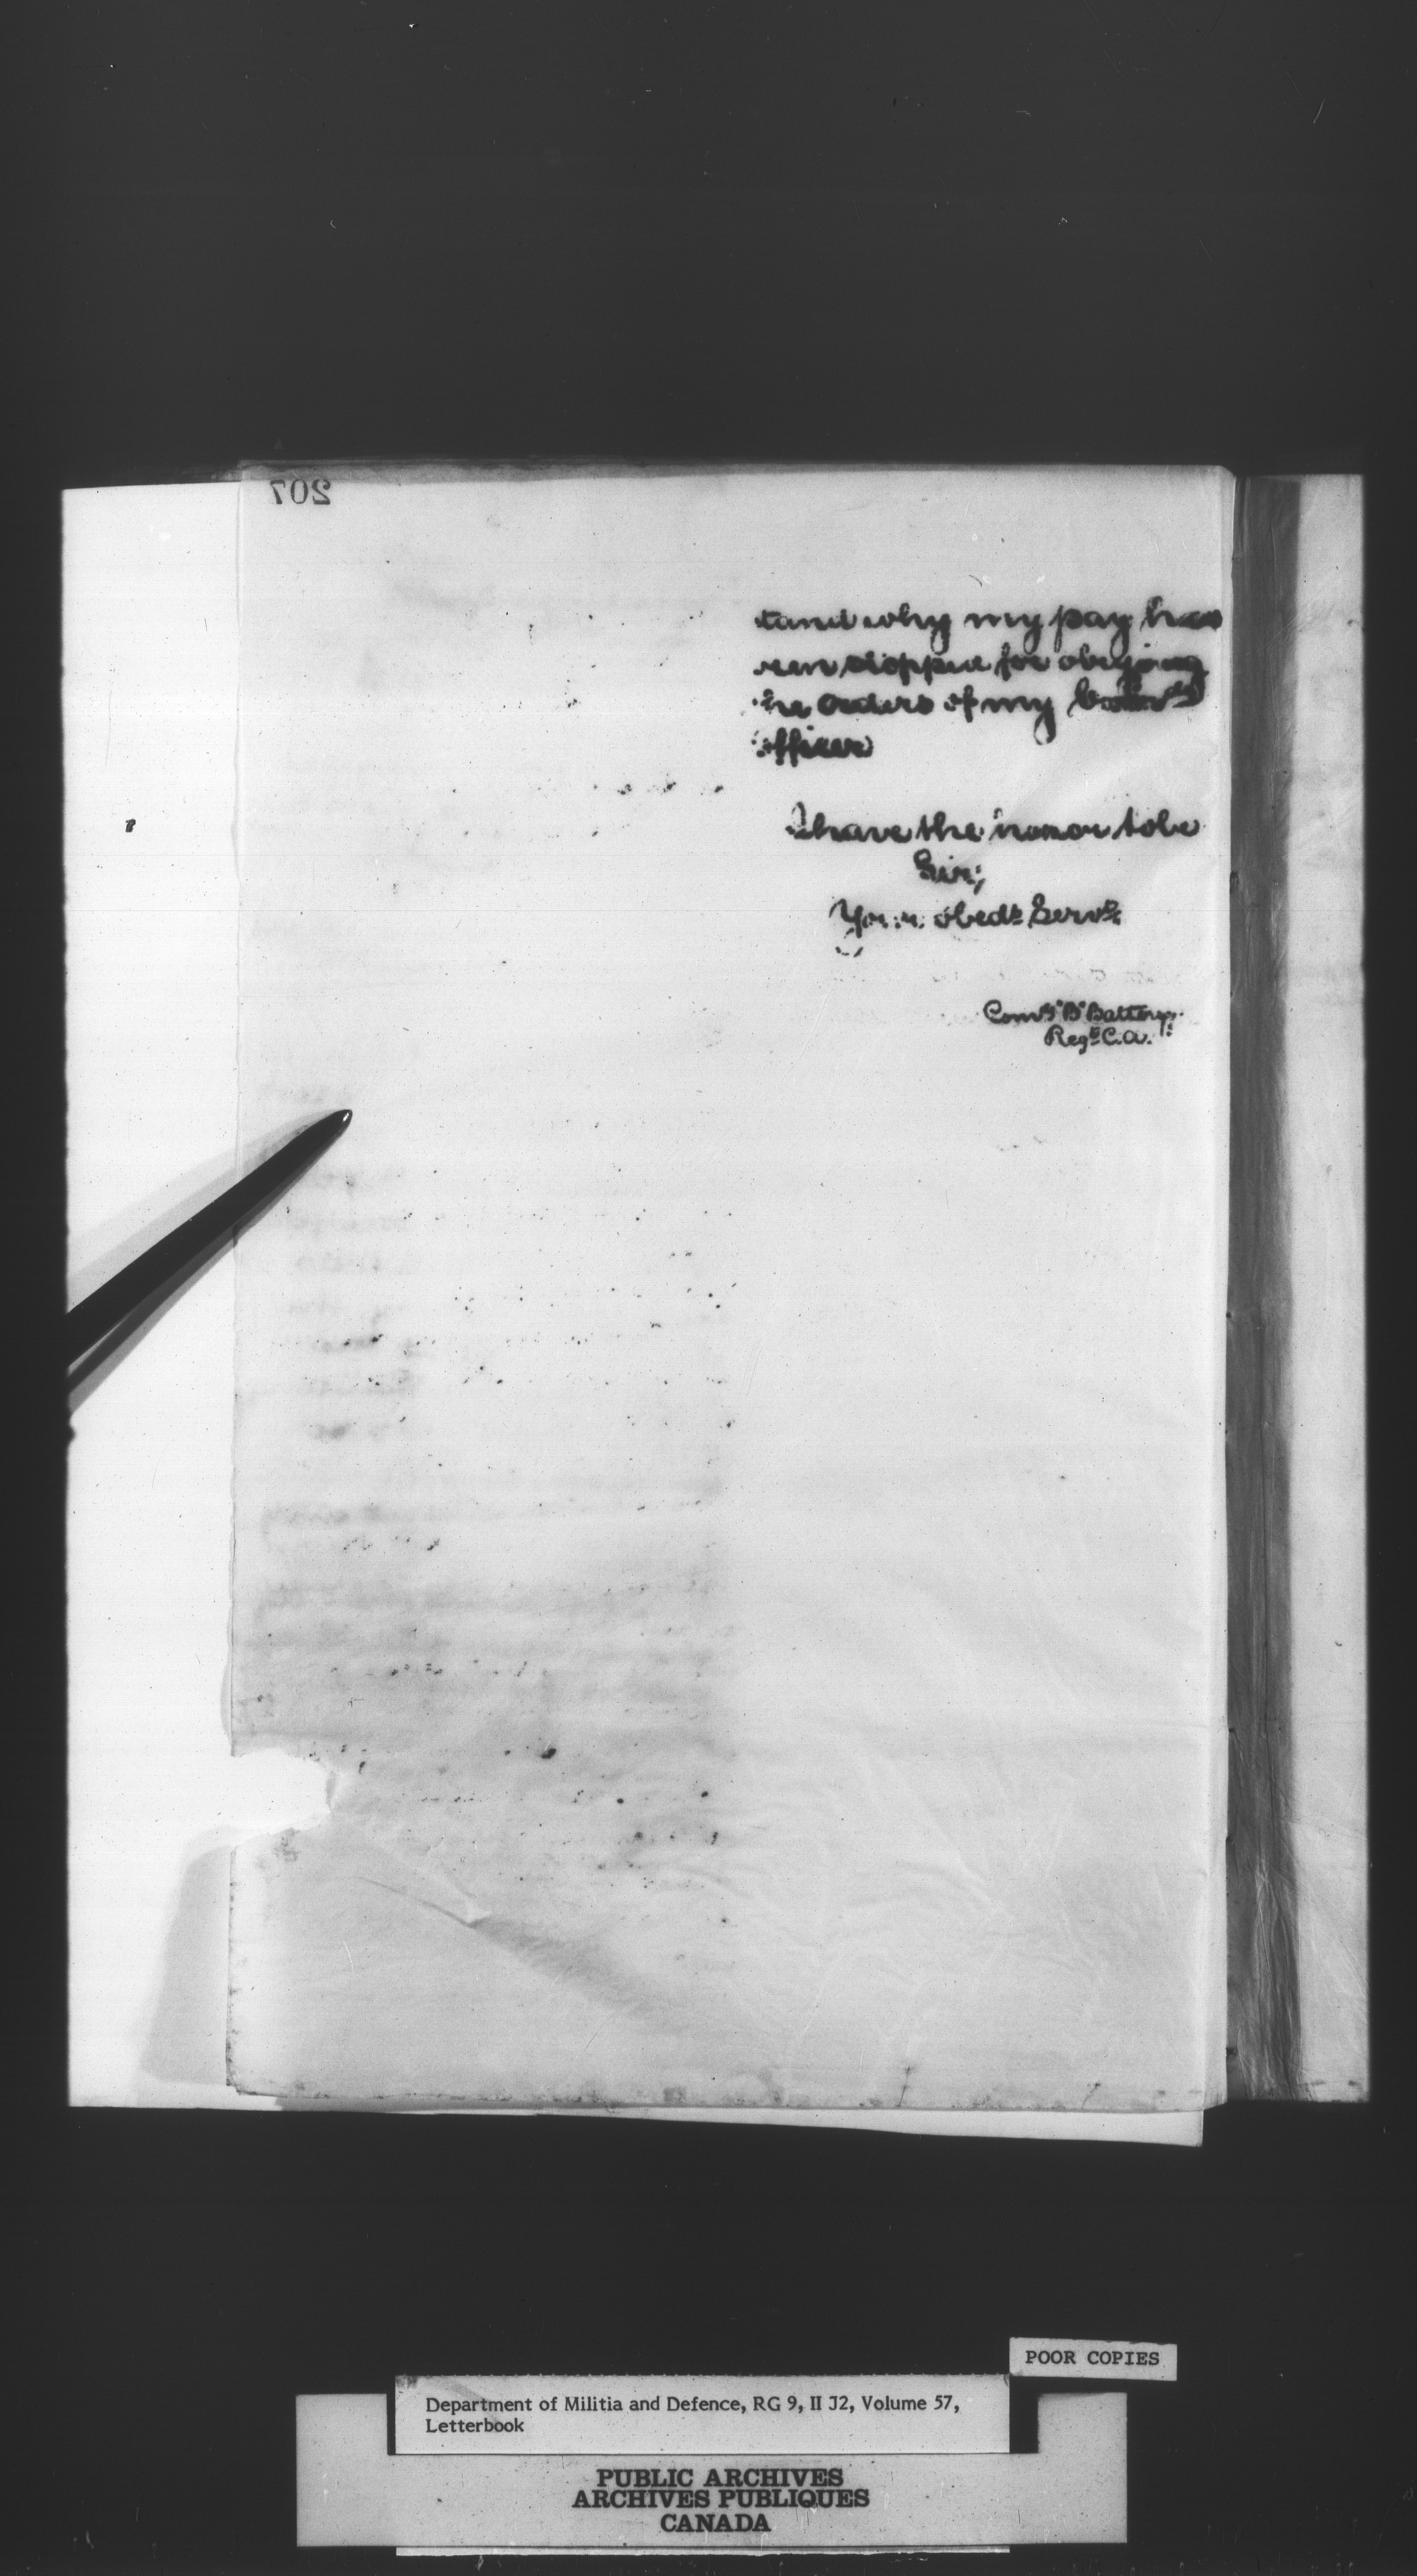 207
tand why my pay has
een stopped for obeying
he orders of my
officer
I have the honor to be
Sir;
Your obedt Servt
Comdg "B" Battery
Regt C.A.
POOR COPIES
Department of Militia and Defence, RG 9, II J2, Volume 57,
Letterbook
PUBLIC ARCHIVES
ARCHIVES PUBLIQUES
CANADA